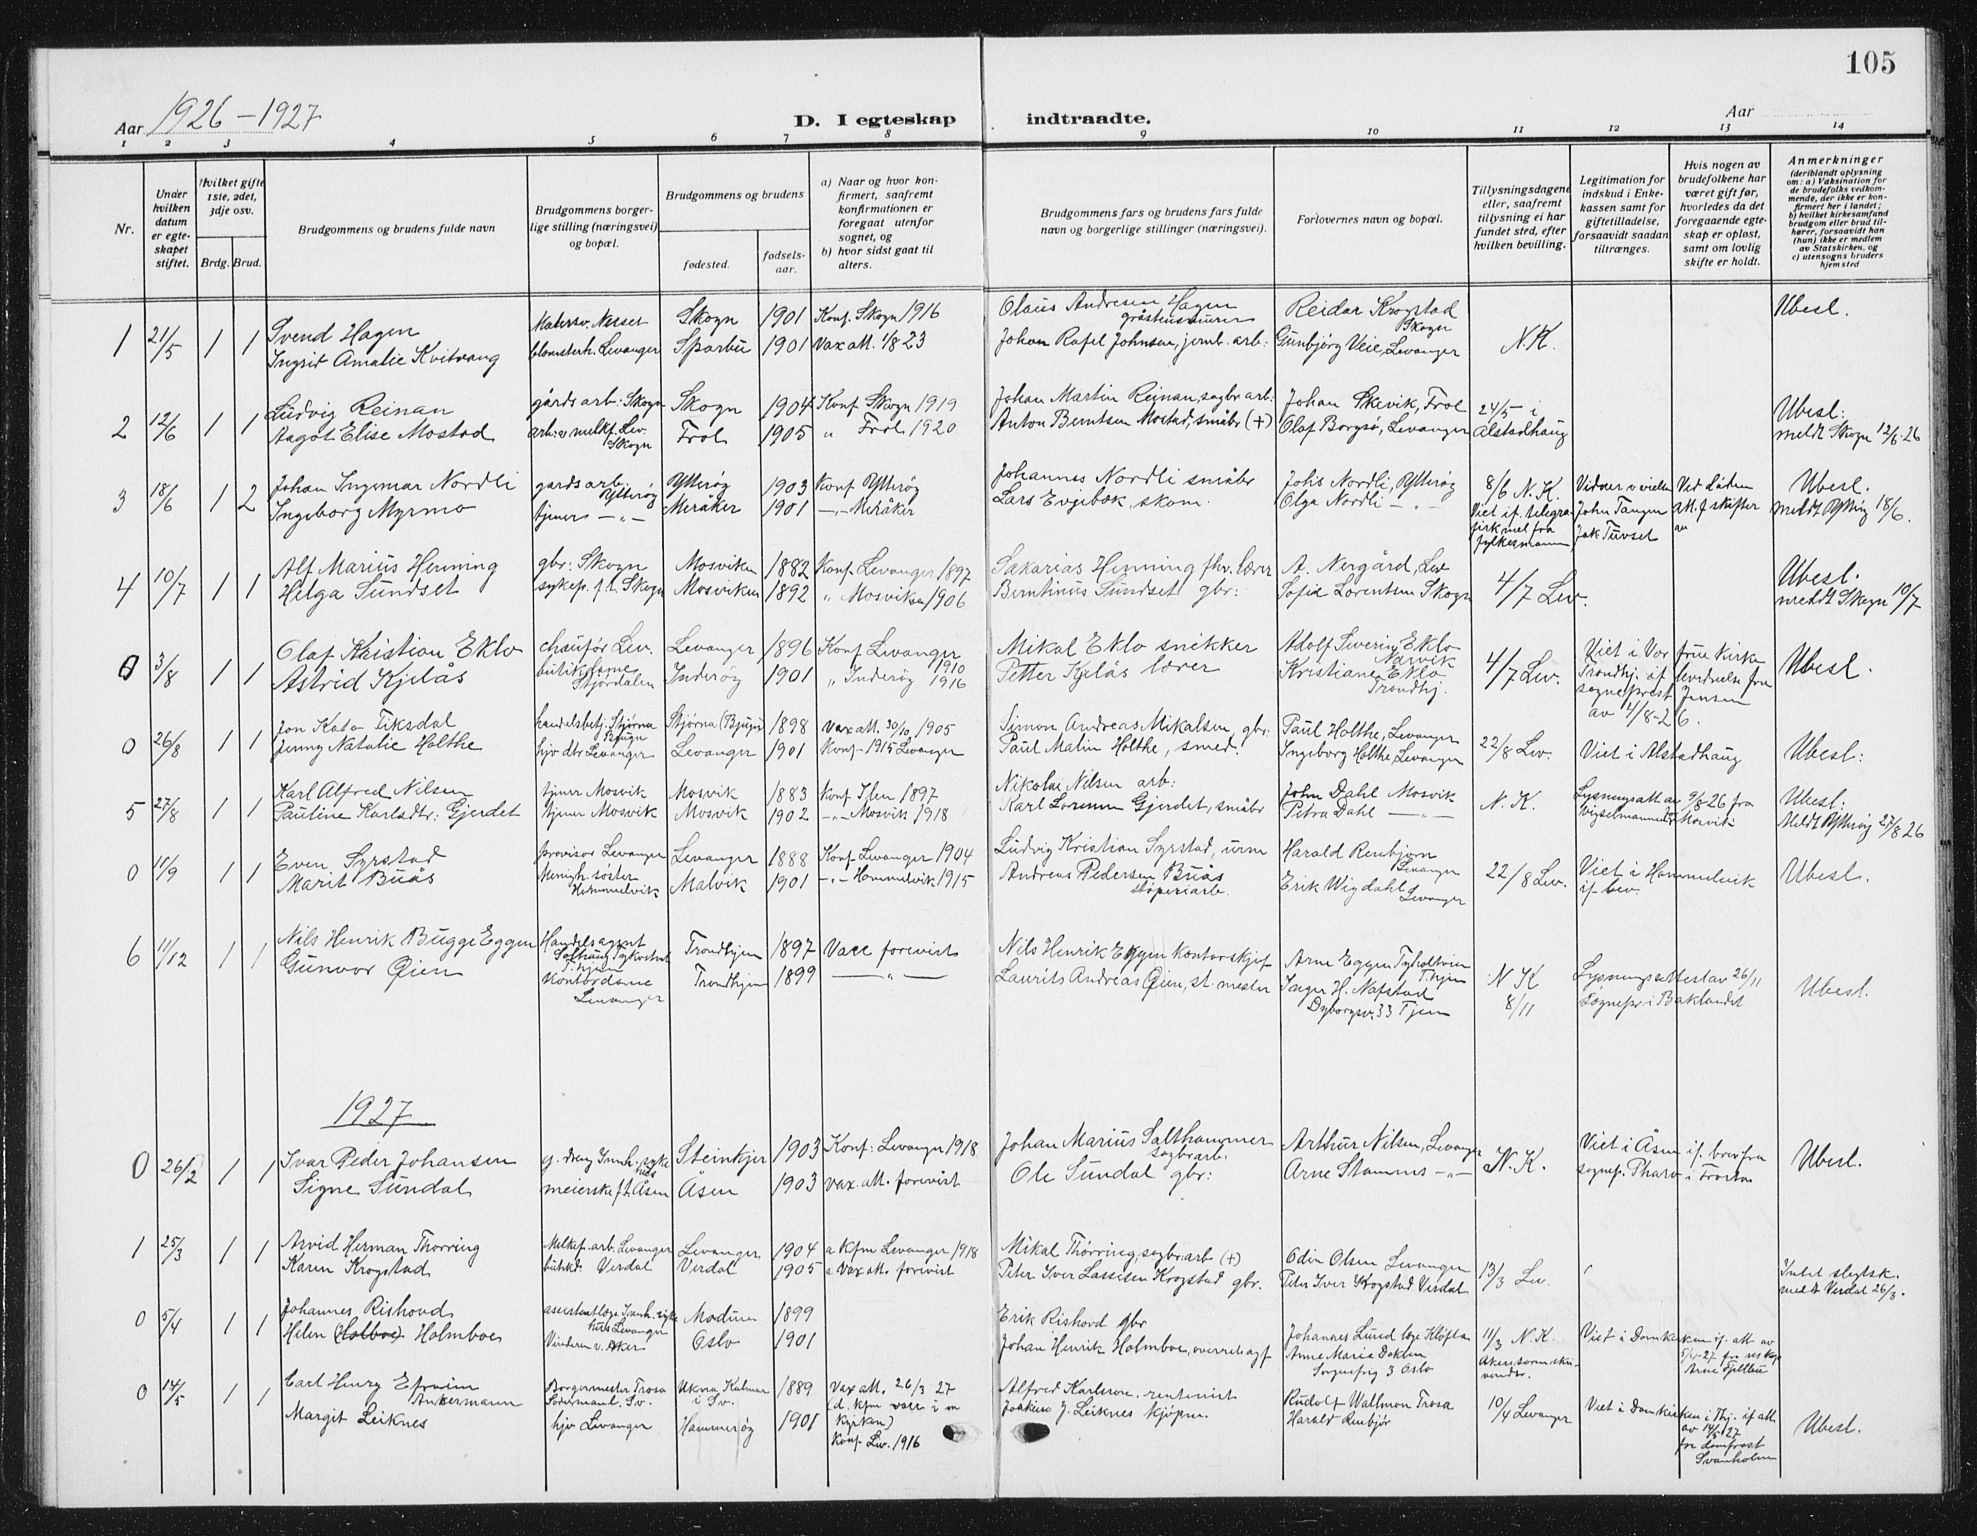 105
Aar 1926 – 1927
D. I egteskap indtraadte.
Aar
1 2 3 4 5 6 7 8 9 10 11 12 13 14
Nr.
Under hvilken datum er egteskapet stiftet.
Hvilket gifte 1ste, 2det, 3dje osv.
Brdg. Brud.
Brudgommens og brudens fulde navn
Brudgommens borgerlige stilling (næringsvei) og bopæl.
Brudgommens og brudens
fødested.
fødselsaar.
a) Naar og hvor konfirmert, saafremt konfirmationen er foregaat utenfor sognet, og
b) hvor sidst gaat til alters.
Brudgommens fars og brudens fars fulde navn og borgerlige stillinger (næringsvei).
Forlovernes navn og bopæl.
Tillysningsdagene eller, saafremt tillysning ei har fundet sted, efter hvilken bevilling.
Legitimation for indskud i Enkekassen samt for giftetilladelse, forsaavidt saadan tiltrænges.
Hvis nogen av brudefolkene har været gift før, hvorledes da det foregaaende egteskap er opløst, samt om lovlig skifte er holdt.
Anmerkninger (deriblandt oplysning om: a) Vaksination for de brudefolks vedkommende, der ikke er konfirmert her i landet; b) hvilket kirkesamfund brudgom eller brud tilhører, forsaavidt han (hun) ikke er medlem av Statskirken, og c) utensogns bruders hjemsted
1 21/5 1 1 Svend Hagen Skogn 1901 Konf. Skogn 1916 Olaus Andresen Hagen Reidar Krogstad Skogn N.K. Ubesl.
Ingrid Amalie Kvitvang blomsterh. Levanger Sparbu 1901 Vax att. 1/8 23 Johan Rafel Johnsen, jernb. arb: Gunbjørg Veie, Levanger
2 12/6 1 1 Ludvig Reinan gårdsarb: Skogn Skogn 1904 Konf Skogn 1919 Johan Martin Reinan, sagbr arb: Johan Skevik, Frol 24/5 i Alstadhaug Ubesl:
Aagot Elise Mostad arb: v melkf. Lev. Skogn Frol 1905 " Frol 1920 Anton Berntsen Mostad, småbr (+) Olaf Borgsø, Levanger meldt Skogn 12/6-26
3 18/6 1 2 Johan Ingemar Nordli gårdsarb: Ytterøy Ytterøy 1903 Konf Ytterøy Johannes Nordli småbr Johs Nordli, Ytterøy 8/6 N.K. Ubesl.
Ingeborg Myrmo tjener –"– Meråker 1901 –"– Meråker Lars Evjebok, skom. Olga Nordli –"– John Tangen Jak. Tuvset meldt Ytterøy 18/6.
4 10/7 1 1 Alf Marius Henning gbr: Skogn Mosviken 1882 Konf. Levanger 1897 Sakarias Henning fhv. lærer A. Nergård, Lev 4/7 Lev. Ubesl.
Helga Sundset sykepl. f.t. Skogn Mosviken 1892 " Mosviken 1906 Berntinus Sundset gbr: Sofie Lorentsen Skogn meldt Skogn 10/7
0 3/8 1 1 Olaf Kristian Eklo chaufør Lev. Levanger 1896 Konf Levanger 1910 Mikal Eklo snikker Adolf Severin Eklo Narvik 4/7 Lev. Viet i Vor frue kirke Ubesl.
Astrid Kjelås Stjørdalen Inderøy 1901 " Inderøy 1916 Petter Kjelås lærer Kristiane Eklo Trondhj. Trondhj. if. bevidnelse fra sogneprest Jensen av 4/8-26.
0 26/8 1 1 Jon Kato Fiksdal handelsbetj: Stjørna Stjørna (Bjugn) 1898 Vax att. 30/10 1905 Simon Andreas Mikalsen, gbr: Paul Holthe, Levanger 22/8 Lev. Viet i Alstadhaug Ubesl:
Jenny Natalie Holthe hjv dtr Levanger Levanger 1901 Konf. 1915 Levanger Paul Malin Holthe, smed. Ingeborg Holthe, Levanger
5 27/8 1 1 Karl Alfred Nilsen tjener Mosvik Mosvik 1883 Konf Ilen 1897 Nikolai Nilsen arb: John Dahl Mosvik N.K. Lysningsatt av 9/8-26 fra Ubesl:
Pauline Karlsdtr: Gjerdet tjener Mosvik Mosvik 1902 –"– Mosvik 1918 Karl Gjerdet, småbr Petra Dahl –"– Mosvik Meldt Ytterøy 27/8 26
0 11/9 1 1 Even Syrstad provisor Levanger Levanger 1888 Konf Levanger 1904 Ludvig Kristian Syrstad, urm Harald Renbjør Levanger 22/8 Lev. Viet i Hommelvik if. bev. Ubesl.
Marit Buås Menigh. søster Hommelvik Malvik 1901 –"– Hommelvik 1915 Andreas Pedersen Buås støperiarb. Erik Wigdahl Levanger
6 11/12 1 1 Nils Henrik Bugge Eggen Handelsagent Trondhjem 1897 Vacc forevist Nils Henrik Eggen kontorskjef Arne Eggen T.hjem N K 8/11 Lysningsattest av 26/11 Ubesl.
Gunvor Øien Kontordame Levanger Trondhjem 1899 –"– Laurits Andreas Øien, st. mester Inger H. Nafstad Dyborgsv. 33 Tjem sognepr i Baklandet
1927
0 26/2 1 1 Ivar Peder Johansen Steinkjer 1903 Konf: Levanger 1918 Johan Marius Salthammer sagbrarb. Arthur Nilsen, Levanger N.K. Viet i Åsen if. brev fra Ubesl.
Signe Sundal meierske f.t. Åsen Åsen 1903 vax. att. forevist Ole Sundal gbr: Arne Stamnes –"– sognep. i Frosta
1 25/3 1 1 Arvid Herman Thorring Melkef. arb. Levanger Levanger 1904 a Kfm Levanger 1918 Mikal Thørring, sagbr: arb (+) Odin Olsen Levanger 13/3 Lev.
Karen Krogstad Verdal Verdal 1905 a Vax att. forevist Peter Iver Lassesen Krogstad gbr. Peter Iver Krogstad Verdal Intet slegtsk. meldt Verdal 26/3.
0 5/4 1 1 Johannes Rishovd assistentlæge Innh. sykehus Levanger Modum 1899 Erik Rishovd gbr Johannes Lund læge Kløften 11/3 N.K. Viet i Domkirken if. att av
Helen (Holboe) Holmboe Vinderen v. Aker Oslo 1901 Johan Henrik Holmboe, overretssagf Anne Marie Sorgenfrig 3 Oslo
0 14/5 1 1 Carl Henry Efraim Ankermann Borgermester Trosa Södermanl. Sv. Kalmar i Sv. 1889 Vax att. 26/3 27 Alfred Karlsson, rentenist Rudolf Wallmon Trosa 10/4 Levanger Viet i Domkirken i Thj. if att. av 14/5-27 fra domprost Svanholm Ubesl.
Margit Leiknes hjv Levanger Hammerøy 1901 Konf. Lev. 1916 Joakim J. Leiknes kjøpm. Harald Renbjør